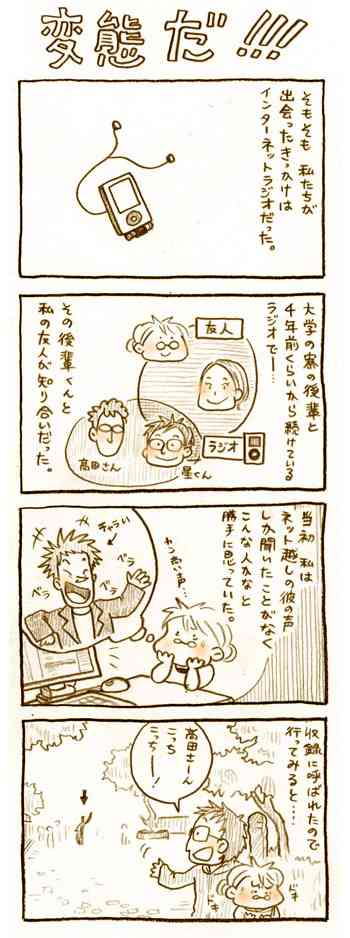 変態だ!!!
そもそも 私たちが
出会ったきっかけは
インターネットラジオだった。
大学の寮の後輩と
4年前くらいから続けている
ラジオで…
友人
ラジオ
高田さん
星くん
その後輩くんと
私の友人が知り合いだった。
当初 私は
ネット越しの彼の声
しか聞いたことがなく
こんな人かなと
勝手に思っていた。
カン高い声…
チャラい
ベラ
ベラ
ベラ
収録に呼ばれたので
行ってみると……
高田さーん
こっち
こっちー!
ドキ
ドキ